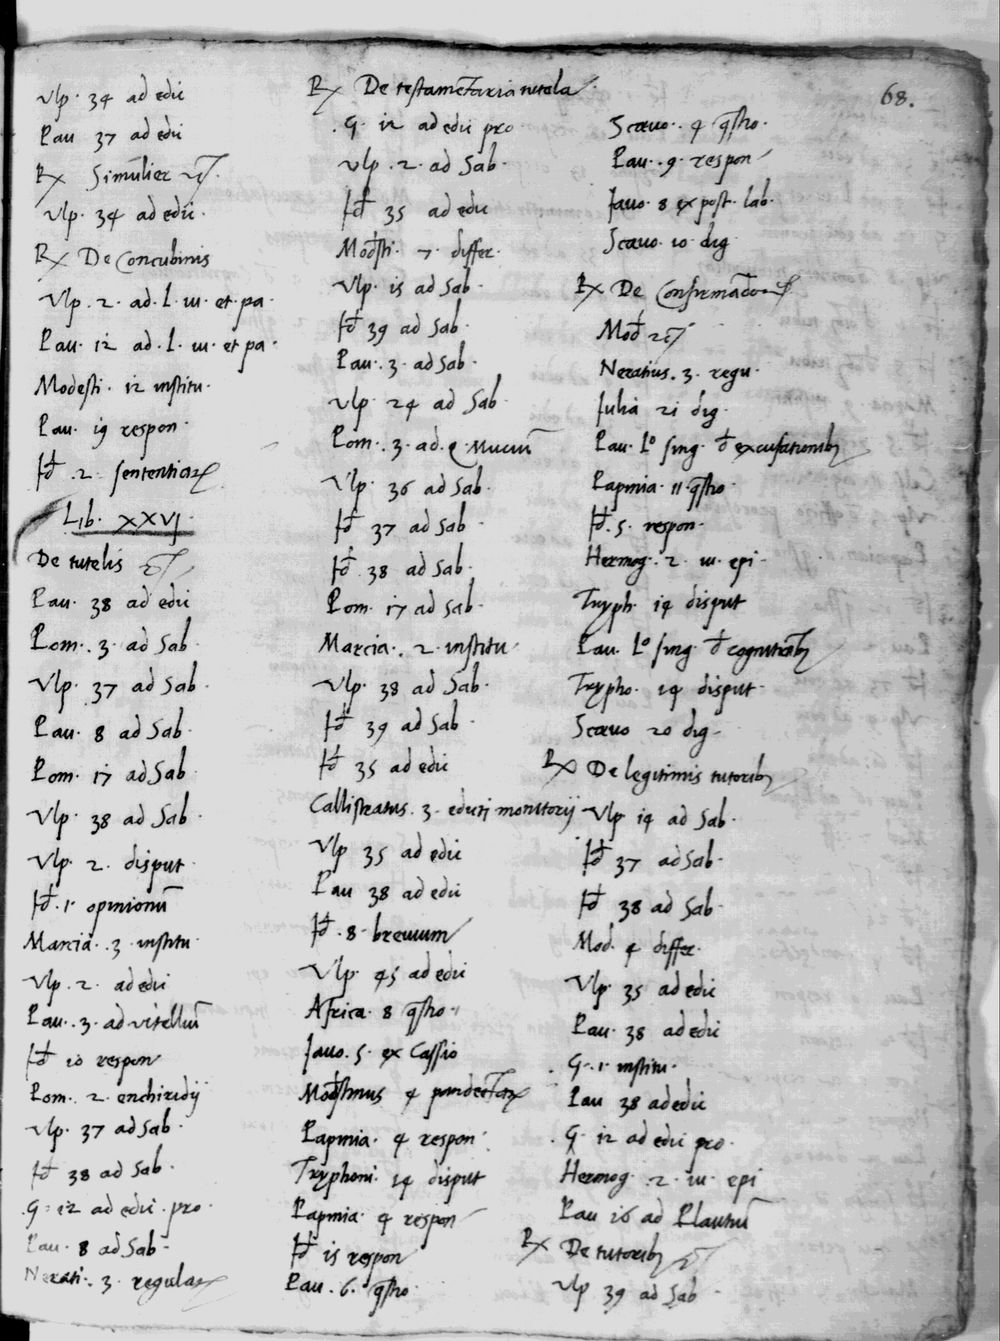 68.
Vlp. 34 ad edic
Pau 37 ad edic
Rx Simulier
Vlp. 34 ad edic.
Rx De Concubinis
Vlp. 2. ad. l. iu. et pa.
Pau. 12 ad. l. iu. et pa.
Modesti. 12 institu.
Pau. 19 respon.
Id .2. sententiar
Lib. XXVI
De tutelis
Pau. 38 ad edic
Pom. 3. ad Sab.
Vlp. 37 ad Sab.
Pau. 8 ad Sab.
Pom. 17 ad Sab
Vlp. 38 ad Sab.
Vlp. 2. disput.
Id .1. opinionū
Marcia. 3 institu.
Vlp. 2. ad edic
Pau. 3. ad vitelliū
Id 10 respon
Pom. 2. enchiridij
Vlp. 37 ad Sab.
Id 38 ad Sab.
G. 12 ad edic. pro.
Pau. 8 ad Sab.
Nerati. 3. regular
Rx De testamētaria tutela
.G. 12 ad edic pro
Vlp. 2. ad Sab.
Id 35 ad edic
Modsti. 7. differ.
Vlp. 15 ad Sab.
Id 39 ad Sab.
Pau. 3. ad Sab.
Vlp 24 ad Sab.
Pom. 3. ad. Q Muciū
Vlp. 36 ad Sab.
Id 37 ad Sab
Id 38 ad Sab.
Pom. 17 ad Sab.
Marcia. 2 institu.
Vlp. 38 ad Sab.
Id 39 ad Sab.
Id 35 ad edic
Callistratus. 3. edicti monitorij
Vlp 35 ad edic
Pau 38 ad edic
Id .8. breuium
Vlp. 45 ad edic
Africa. 8 qstio.
Jauo. 5. ex Cassio
Modstinus 4 pandectar
Papinia. 4 respon.
Tryphoni. 14 disput
Papinia. 4 respon
Id 15 respon
Pau. 6. qstio
Scæuo. 4 qstio.
Pau. 9. respon
Jauo. 8 ex post. lab.
Scæuo. 10. dig
Rx De Confirmādo
Mod
Neratius. 3. regu.
Julia 21 dig.
Pau. lo sing. d excusationib
Papinia. 11. qstio.
Id. 5. respon.
Hermog. 2. iu. epi.
Tryph. 14 disput
Pau. lo sing. d cognitiōib
Trypho. 14 disput.
Scæuo 20 dig.
Rx De legitimis tutorib
Vlp. 14 ad Sab.
Id 37 ad Sab.
Id 38 ad Sab.
Mod. 4 differ.
Vlp. 35 ad edic
Pau. 38 ad edic
G. 1. institu.
Pau 38 ad edic
.G. 12 ad edic pro.
Hermog. 2. iu. epi
Pau 16 ad Plautiū
Rx De tutorib
Vlp 39 ad Sab